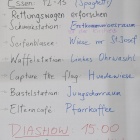 Essen 12:15 (Spaghetti)
Rettungswagen erforschen
- Schminkstation:
- Seifenkiste: Wiese vor St. Josef
- Waffelstation: Linkes Ohrwaschl
- Capture the flag: Hundewiese
- Bastelstation: Jungscharraum
- Elterncafé: Pfarrkaffee
DIASHOW 15:00